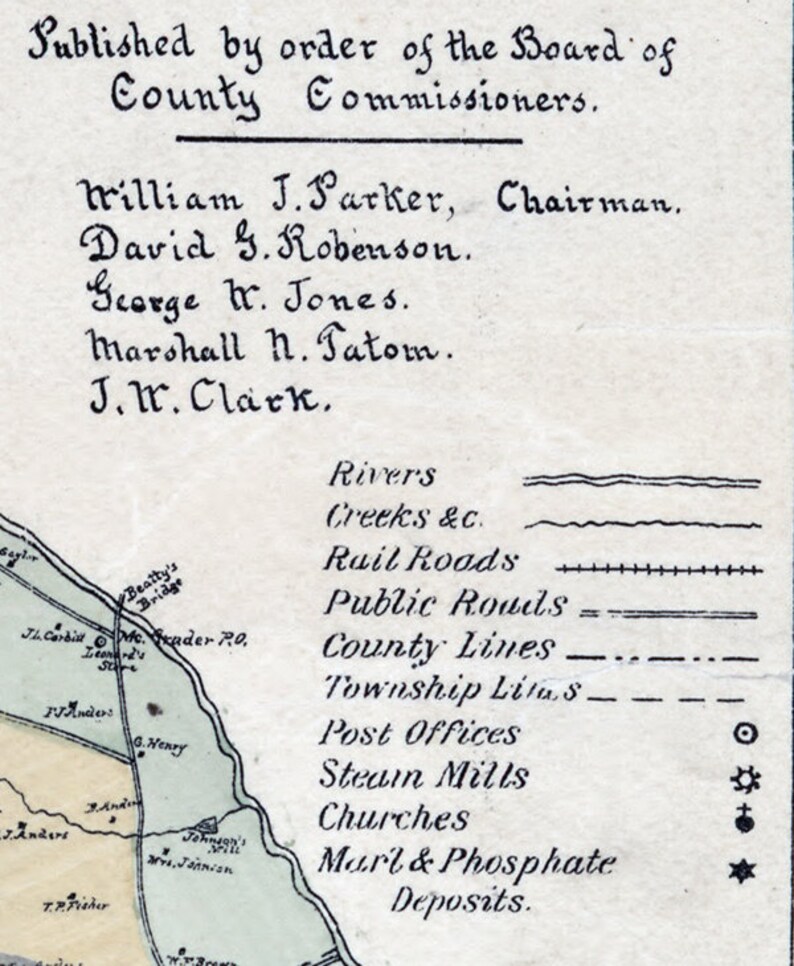 Published by order of the Board of
County Commissioners.
William J. Parker, Chairman.
David G. Robenson.
George W. Jones.
Marshall N. Tatom.
J. W. Clark.
Rivers
Creeks &c.
Rail Roads
Public Roads
County Lines
Township Lines
Post Offices
Steam Mills
Churches
Marl & Phosphate
Deposits.
Beatty's
Bridge
J.L. Corbitt
Mc. Grader P.O.
Leonard's
Store
P.J. Anders
G. Henry
Johnson's
Mill
J. Anders
Mrs. Johnson
T.P. Fisher
W.F. Brown